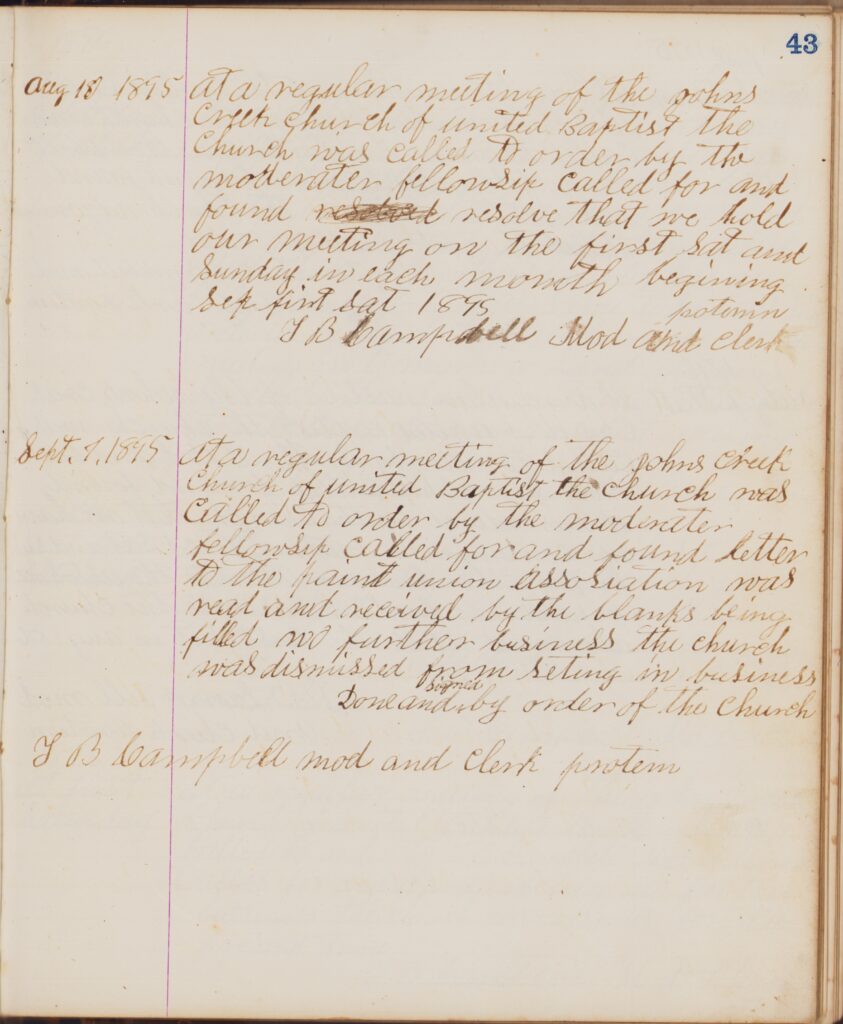 43
Aug 18 1895 at a regular meeting of the johns
Creek Church of united Baptist the
Church was called to order by the
moderater fellowsip called for and
found resolved resolve that we hold
our meeting on the first Sat and
Sunday in each month begining
Sep first Sat 1895 potemn
T B Campbell Mod and Clerk
Sept. 7, 1895 at a regular meeting of the johns creek
Church of united Baptist the church was
Called to order by the moderater
fellowsip called for and found letter
to the paint union assosiation was
read and received by the blanks being
filled no further business the church
was dismissed from seting in business
Done and signed by order of the church
T B Campbell mod and clerk protem